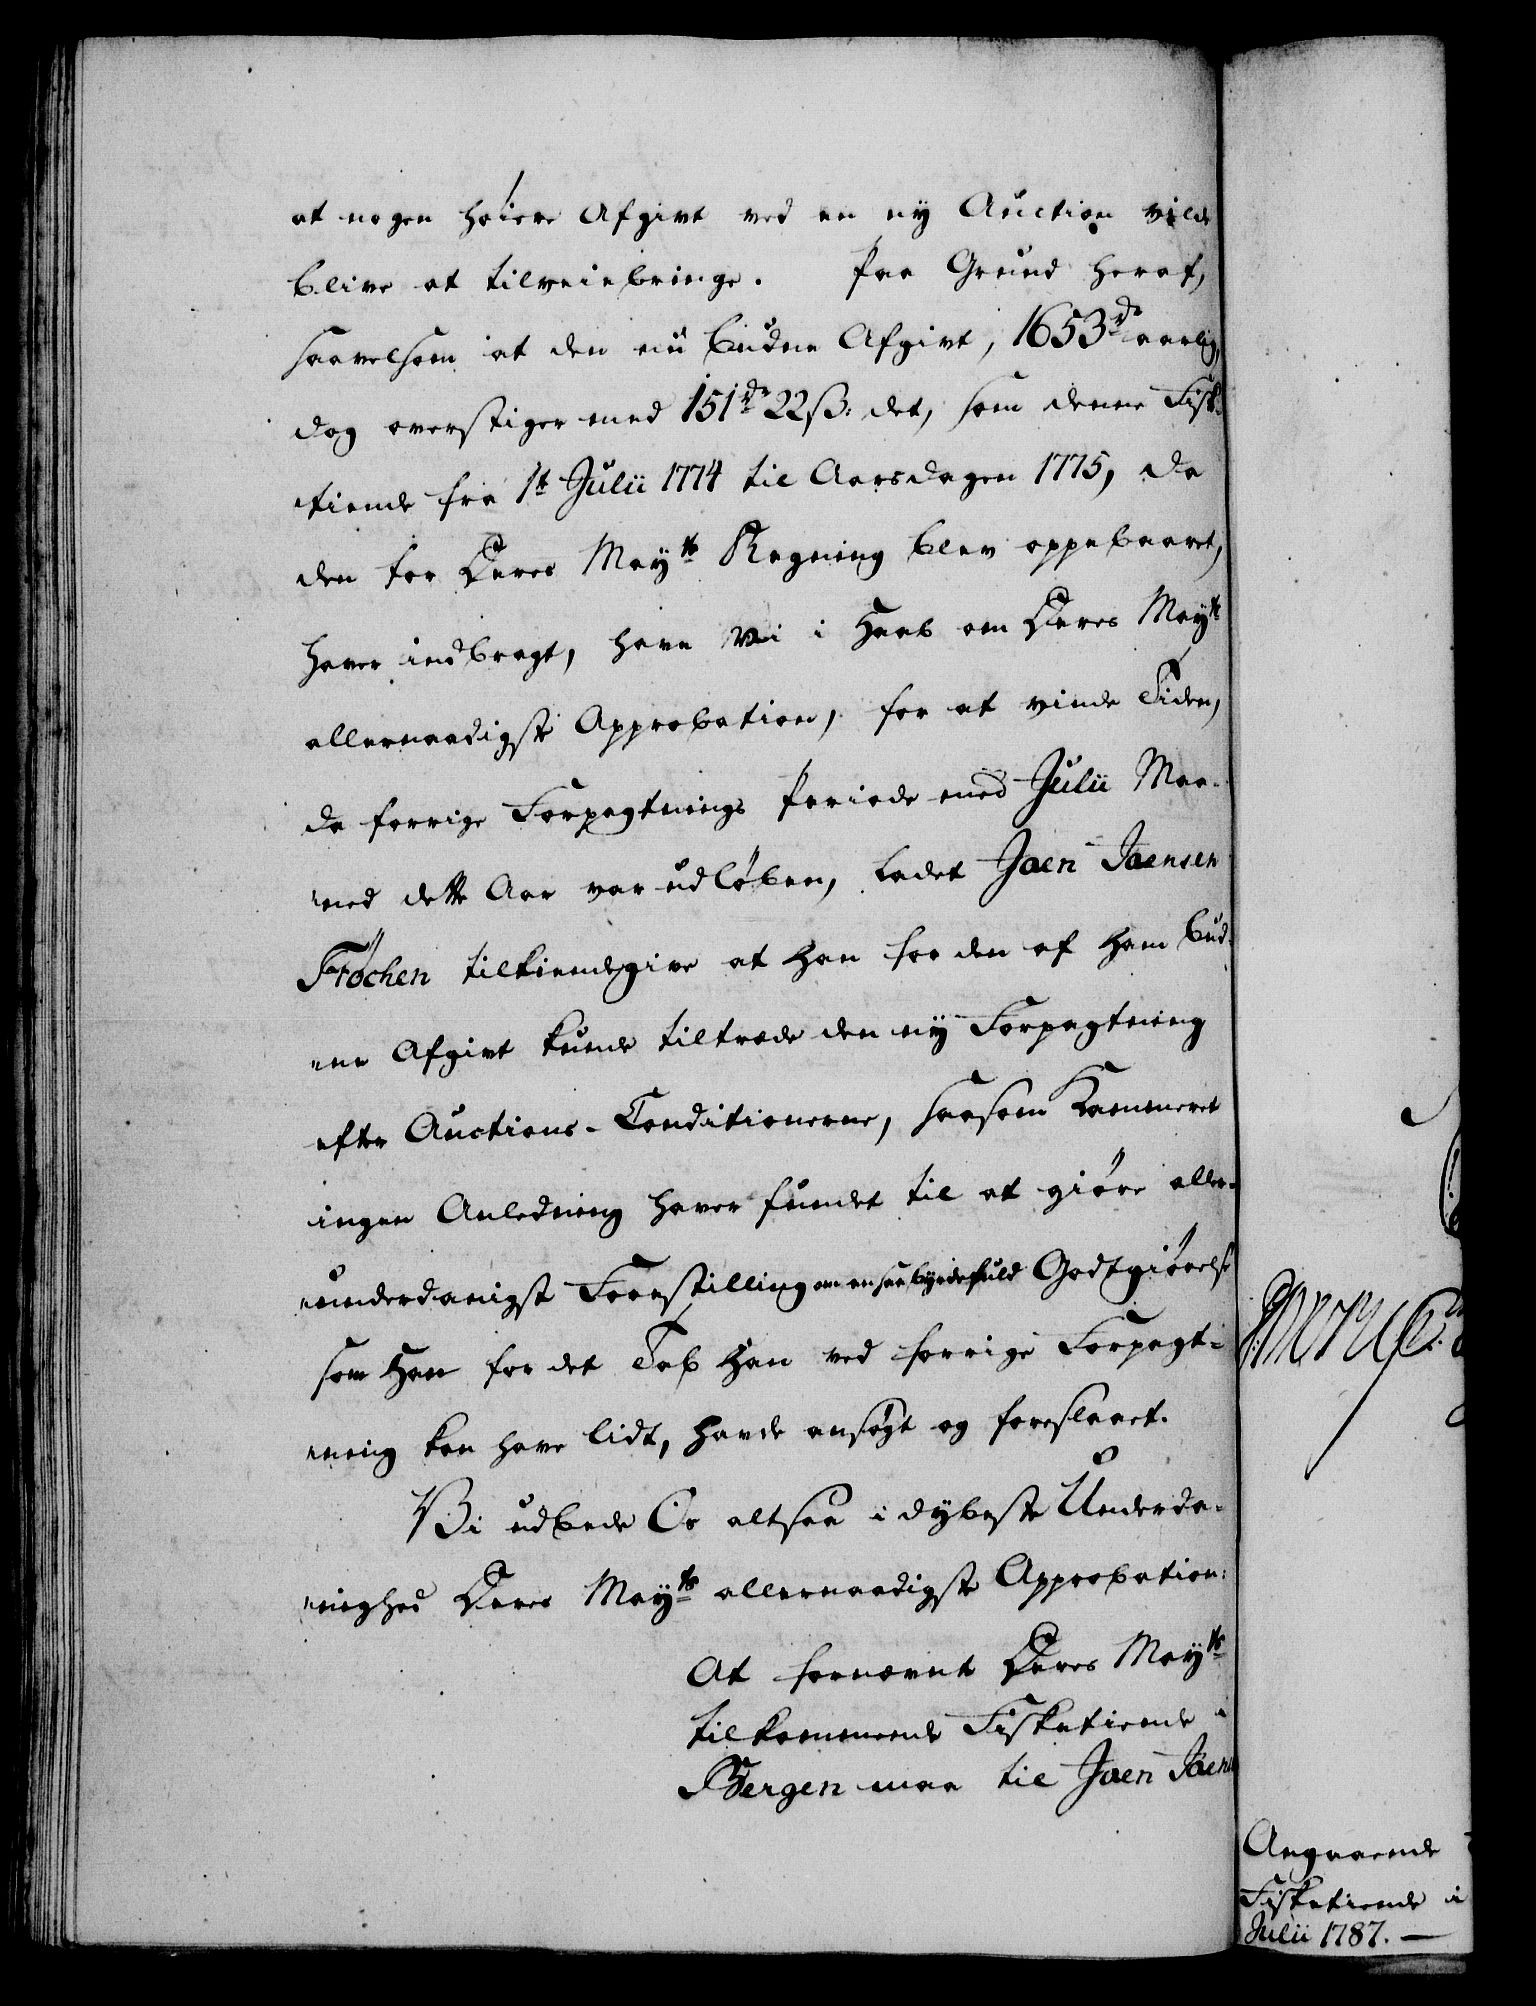 at nogen høiere Afgivt ved en ny Auction vilde
blive at tilveiebringe. Paa Grund heraf,
saavelsom at den nu budne Afgivt, 1653 rd aarlig,
dog overstiger med 151 rd 22 ß: det, som denne Fisk-
tiende fra 1te Julii 1774 til Aarsdagen 1775, da
den for Deres Mayts Regning blev oppebaaret,
haver indbragt, have Vi i Haab om Deres Mayts
allernaadigste Approbation, for at vinde Tiden,
da forrige Forpagtnings Periode med Julii Maa-
ned dette Aar var udløben, ladet Joen Joensen
Frøchen tilkiendegive at Han for den af Ham bud-
ne Afgivt kunde tiltræde den ny Forpagtning
efter Auctions-Conditionerne, saasom Kammeret
ingen Anledning haver fundet til at giøre aller-
underdanigst Forestilling om en saa byrdefuld Godtgiørelse
som Han for det Tab Han ved forrige Forpagt-
ning kan have lidt, havde ansøgt og foreslaaet.
Vi udbede Os altsaa i dybeste Underda-
nighed Deres Mayts allernaadigste Approbation:
At fornævnt Deres Mayts
tilkommende Fisketiende i
Bergen maa til Joen Joens
Angaaende
Fisketiende i
Julii 1787. —